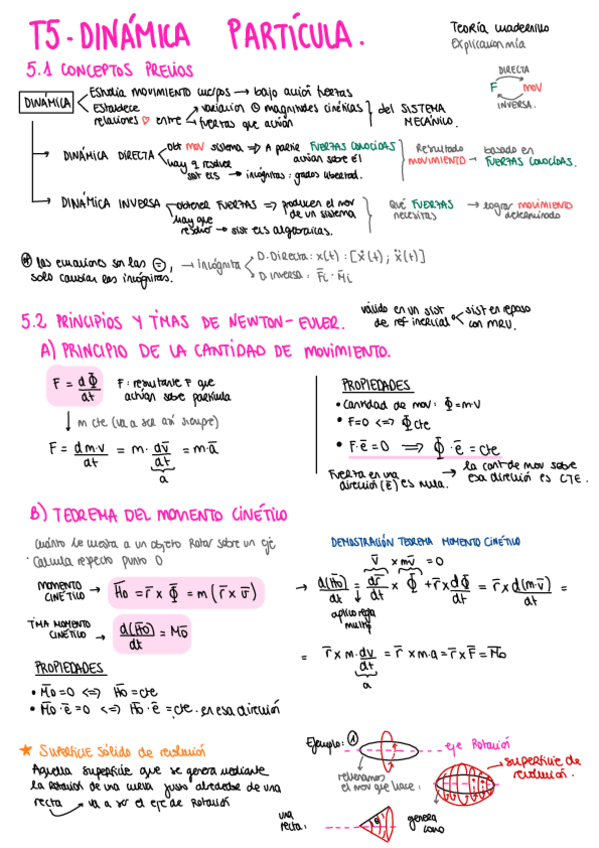 T5 - DINÁMICA PARTÍCULA.
Teoría cuadernillo
Explicación mía
5.1 CONCEPTOS PREVIOS
DINÁMICA
Estudia movimiento cuerpos → bajo acción fuerzas
Establece relaciones entre → variación magnitudes cinéticas
→ fuerzas que actúan
del SISTEMA MECÁNICO.
DIRECTA
F mov
INVERSA.
DINÁMICA DIRECTA
obt mov sistema ⇒ A partir FUERZAS CONOCIDAS
actúan sobre él
hay q resolver
sist ecs → incógnitas: grados libertad.
Resultado MOVIMIENTO → basado en FUERZAS CONOCIDAS.
DINÁMICA INVERSA
obtener FUERZAS ⇒ producen el mov
de un sistema
hay que
resolver → sist ecs algebraicas.
Qué FUERZAS necesitas → lograr MOVIMIENTO determinado
* las ecuaciones son las =,
solo cambian las incógnitas.
→ incógnita
D. Directa: x(t) : [ẋ(t); ẍ(t)]
D inversa: F̄i · M̄i
5.2 PRINCIPIOS Y TMAS DE NEWTON-EULER.
válido en un sist de ref inercial
sist en reposo
con MRU.
A) PRINCIPIO DE LA CANTIDAD DE MOVIMIENTO.
F = dΦ̄/dt
F: resultante F que
actúan sobre partícula
↓ m cte (va a ser así siempre)
F = d m·v/dt = m· dv̄/dt = m·ā
a
PROPIEDADES
• Cantidad de mov: Φ̄ = m·v
• F=0 <=> Φ̄ cte
• F·ē = 0 ⇒ Φ̄·ē = cte
Fuerza en una dirección (ē) es nula.
→ la cant de mov sobre
esa dirección es CTE.
B) TEOREMA DEL MOMENTO CINÉTICO
Cuánto le cuesta a un objeto rotar sobre un eje
· Calcula respecto punto O
MOMENTO CINÉTICO → H̄o = r̄ x Φ̄ = m (r̄ x v̄)
TMA MOMENTO CINÉTICO → d(H̄o)/dt = M̄o
PROPIEDADES
• M̄o = 0 <=> H̄o = cte
• M̄o·ē = 0 <=> H̄o·ē = cte. en esa dirección
DEMOSTRACIÓN TEOREMA MOMENTO CINÉTICO
v̄ x mv̄ = 0
→ d(H̄o)/dt = dr̄/dt x Φ̄ + r̄ x dΦ̄/dt = r̄ x d(m·v̄)/dt =
aplico regla
multip
= r̄ x m· dv/dt = r̄ x m·a = r̄ x F̄ = M̄o
a
★ SUPERFICIE sólido de revolución
Aquella superficie que se genera mediante
la rotación de una curva justo alrededor de una
recta → va a ser el eje de rotación
Ejemplo: 1
eje Rotación
rellenamos
el mov que hace.
superficie de revolución.
una recta:
genera cono